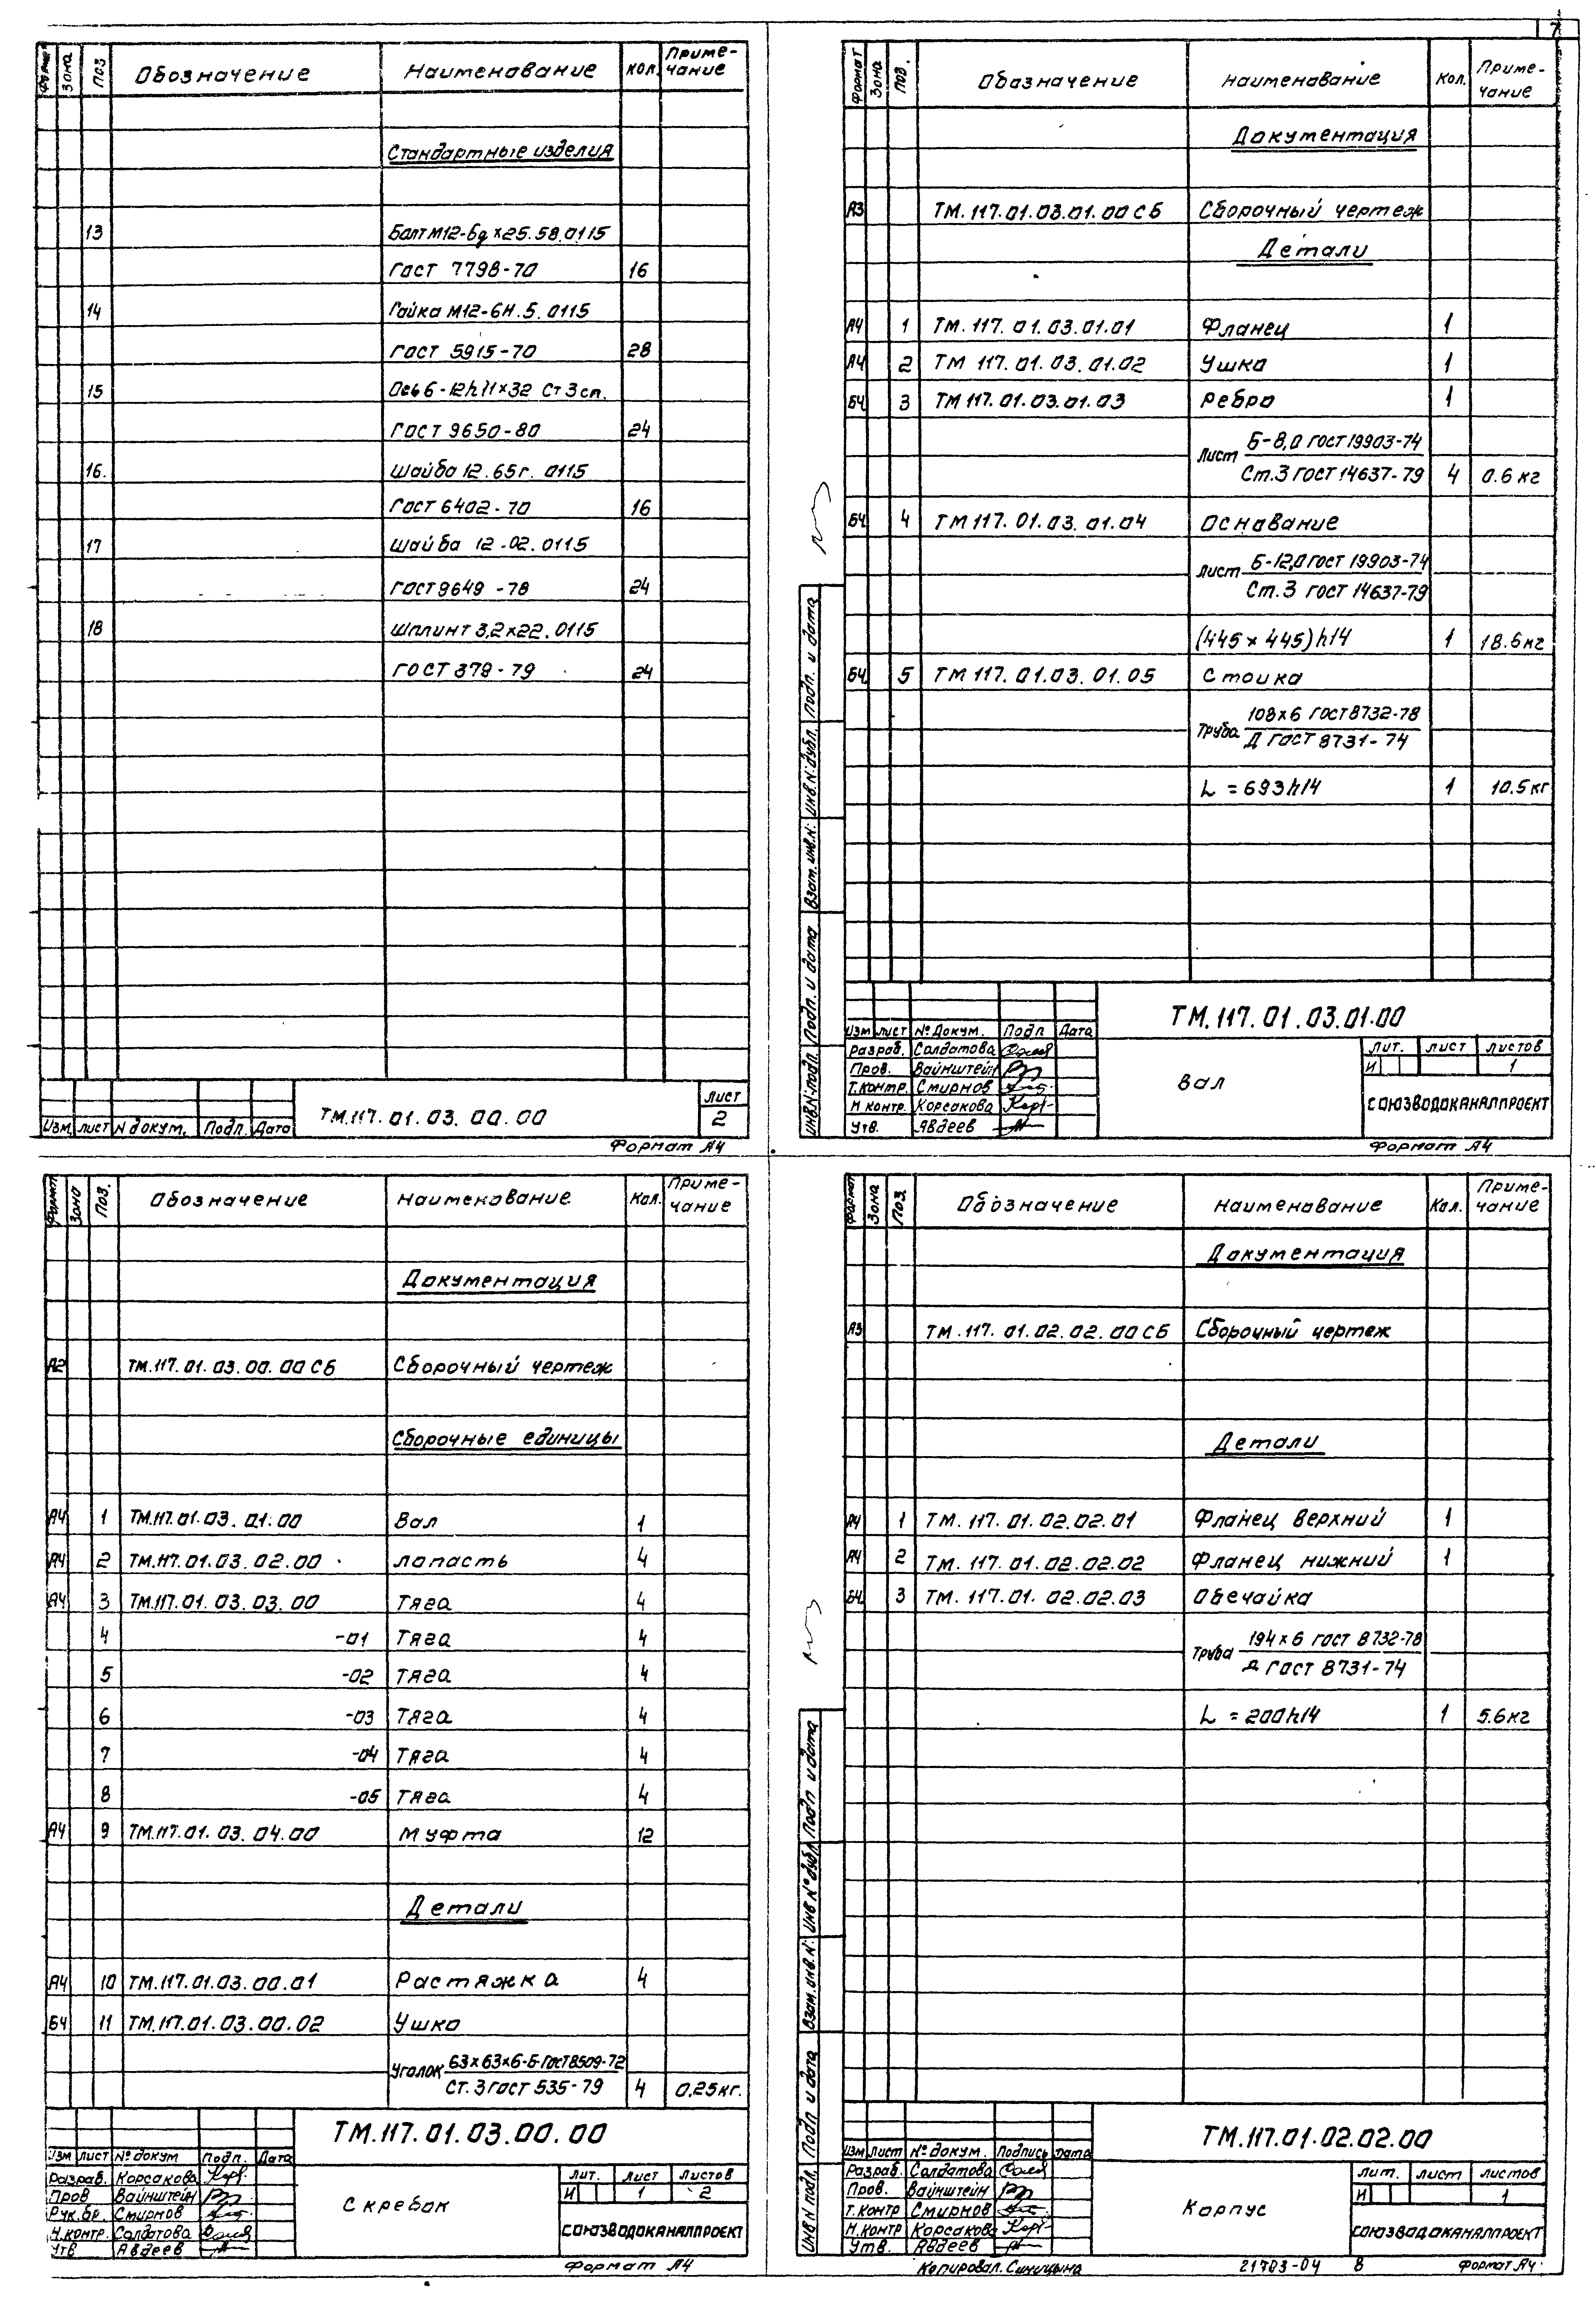 7
Формат Зона Поз Обозначение Наименование Кол. Приме-чание
Стандартные изделия
13 Болт М12-6g×25.58.0115
Гост 7798-70 16
14 Гайка М12-6Н.5.0115
Гост 5915-70 28
15 Ось 6-12h11×32 Ст3сп.
Гост 9650-80 24
16. Шайба 12.65г.0115
Гост 6402-70 16
17 Шайба 12-02.0115
Гост 9649-78 24
18 Шплинт 3,2×22.0115
ГОСТ 379-79 24
ТМ.117.01.03.00.00
Лист
2
Изм. лист N докум. Подп. Дата
Формат А4
Формат Зона Поз. Обозначение Наименование Кол. Приме-чание
Документация
А3 ТМ.117.01.03.01.00СБ Сборочный чертеж
Детали
А4 1 ТМ.117.01.03.01.01 Фланец 1
А4 2 ТМ 117.01.03.01.02 Ушко 1
БЧ 3 ТМ 117.01.03.01.03 Ребро 1
Лист Б-8,0 ГОСТ 19903-74
Ст.3 ГОСТ 14637-79 4 0.6 кг
БЧ 4 ТМ 117.01.03.01.04 Основание
Лист Б-12,0 ГОСТ 19903-74
Ст.3 ГОСТ 14637-79
(445×445)h14 1 18.6кг
БЧ 5 ТМ 117.01.03.01.05 Стойка
Труба 108×6 ГОСТ 8732-78
Д ГОСТ 8731-74
L = 693h14 1 10.5кг
Инв.N подл. Подп. и дата Взам.инв.N: Инв.N: дубл. Подп. и дата
ТМ.117.01.03.01.00
Изм лист №Докум. Подп Дата
Разраб. Солдатова
Пров. Вайнштейн
Т.контр. Смирнов
Н контр. Корсакова
Утв. Авдеев
Вал
Лит. Лист Листов
И 1
СОЮЗВОДОКАНАЛПРОЕКТ
Формат А4
Формат Зона Поз. Обозначение Наименование Кол. Приме-чание
Документация
А2 ТМ.117.01.03.00.00СБ Сборочный чертеж
Сборочные единицы
А4 1 ТМ.117.01.03.01.00 Вал 1
А4 2 ТМ.117.01.03.02.00 Лопасть 4
А4 3 ТМ.117.01.03.03.00 Тяга 4
4 -01 Тяга 4
5 -02 Тяга 4
6 -03 Тяга 4
7 -04 Тяга 4
8 -05 Тяга 4
А4 9 ТМ.117.01.03.04.00 Муфта 12
Детали
А4 10 ТМ.117.01.03.00.01 Растяжка 4
БЧ 11 ТМ.117.01.03.00.02 Ушко
Уголок 63×63×6-Б-Гост 8509-72
Ст.3 Гост 535-79 4 0,25кг.
ТМ.117.01.03.00.00
Изм лист №докум Подп. Дата
Разраб. Корсакова
Пров Вайнштейн
Рук.бр. Смирнов
Н.контр. Солдатова
Утв Авдеев
Скребок
Лит. Лист Листов
И 1 2
СОЮЗВОДОКАНАЛПРОЕКТ
Формат А4
Формат Зона Поз. Обозначение Наименование Кол. Приме-чание
Документация
А3 ТМ.117.01.02.02.00СБ Сборочный чертеж
Детали
А4 1 ТМ.117.01.02.02.01 Фланец верхний 1
А4 2 ТМ.117.01.02.02.02 Фланец нижний 1
БЧ 3 ТМ.117.01.02.02.03 Обечайка
Труба 194×6 ГОСТ 8732-78
Д ГОСТ 8731-74
L = 200h14 1 5.6кг
Инв N подл. Подп и дата Взам.инв.N: Инв N° дубл Подп и дата
ТМ.117.01.02.02.00
Изм лист №докум. Подпись Дата
Разраб. Солдатова
Пров. Вайнштейн
Т.контр Смирнов
Н.контр Корсакова
Утв. Авдеев
Корпус
Лит. Лист Листов
И 1
СОЮЗВОДОКАНАЛПРОЕКТ
Копировал. Синицына 21703-04 8 Формат А4